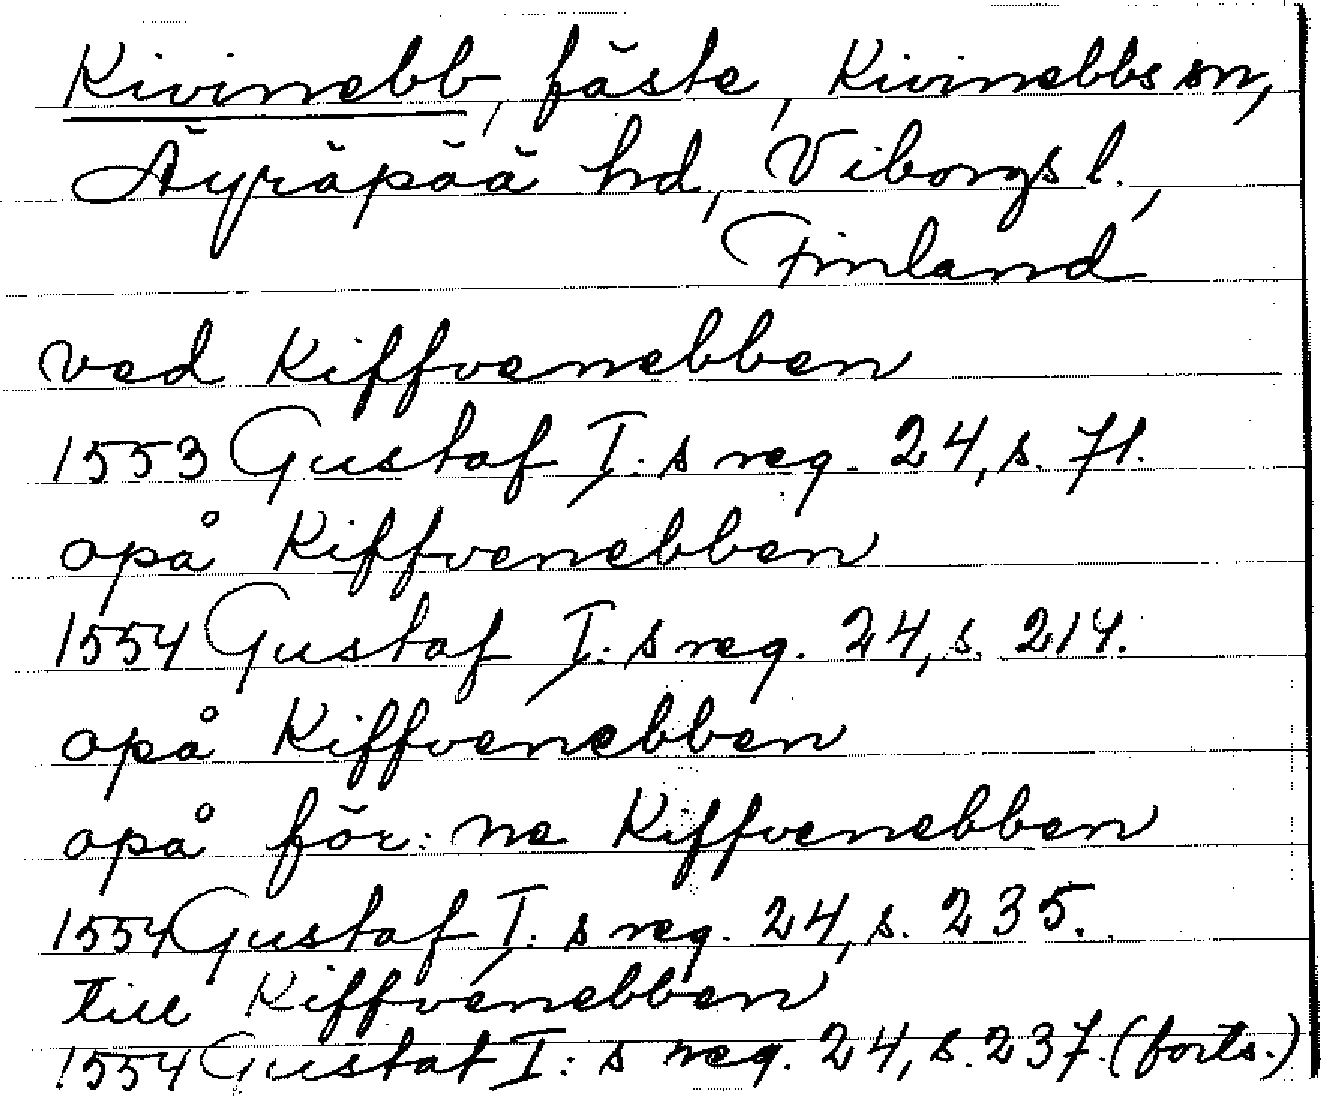 Kivinebb, fäste, Kivinebbs sn,
Äyräpää hd, Viborgs l.,
Finland
ved Kiffvenebben
1553 Gustaf I:s reg. 24, s. 71.
opå Kiffvenebben
1554 Gustaf I:s reg. 24, s. 214.
opå Kiffvenebben
opå för:ne Kiffvenebben
1554 Gustaf I:s reg. 24, s. 235.
till Kiffvenebben
1554 Gustaf I:s reg. 24, s. 237. (forts.)